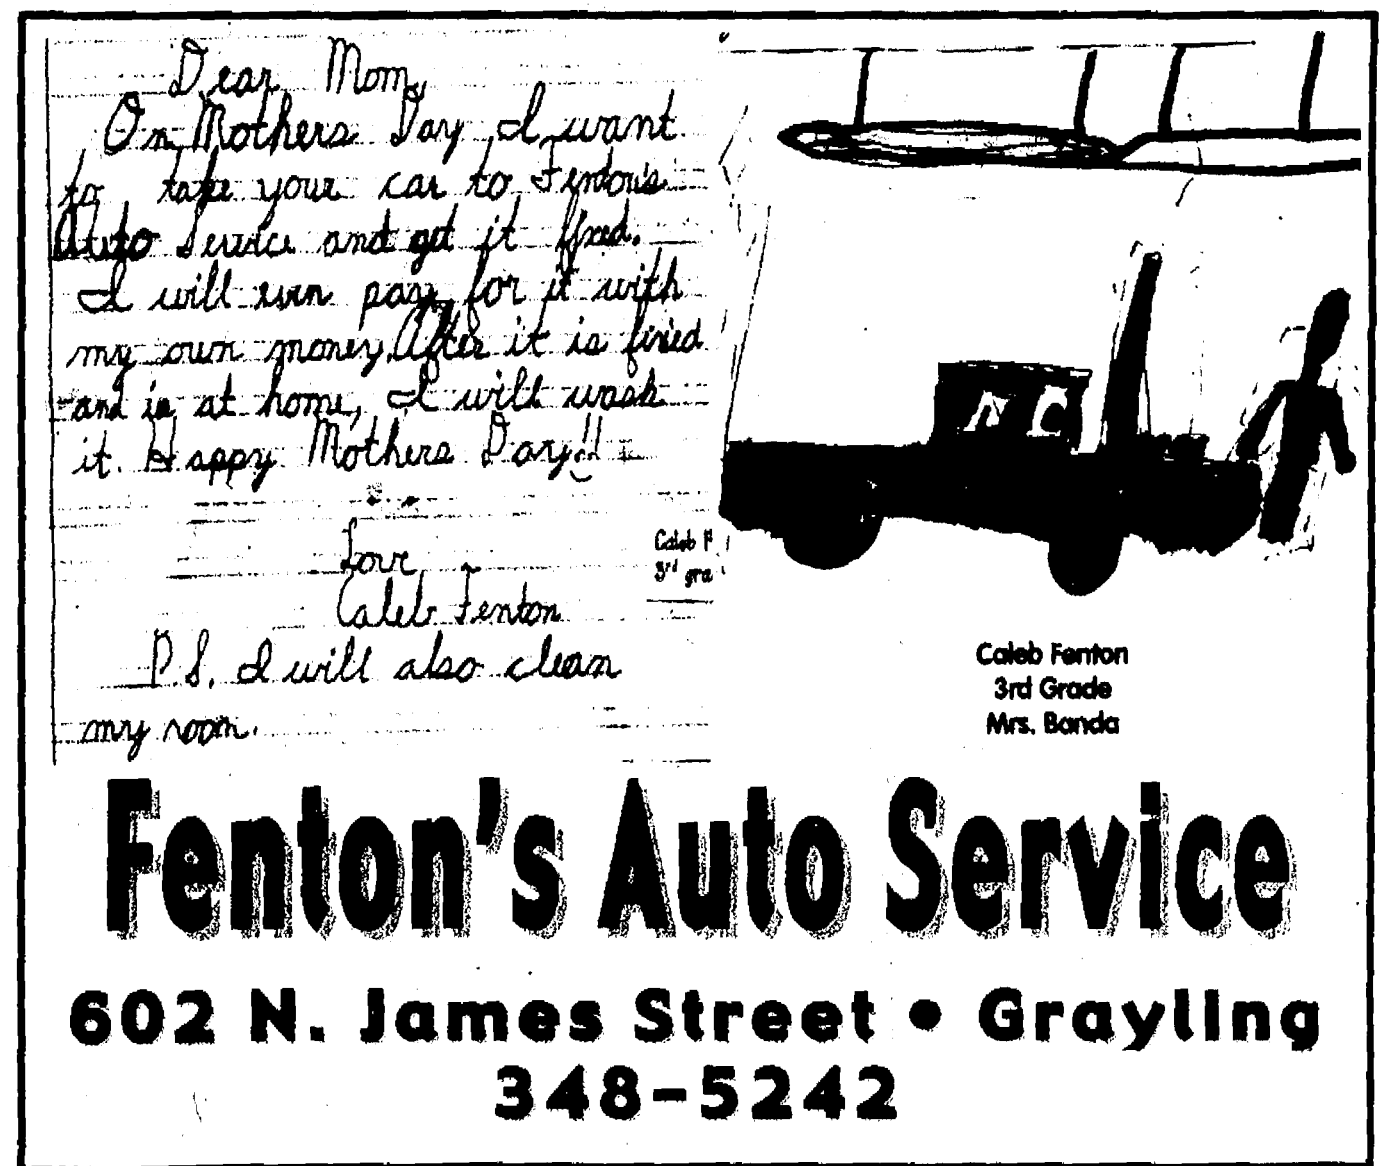 Dear Mom,
On Mothers Day I want
to take your car to Fenton's
Auto Service and get it fixed.
I will even pay for it with
my own money. After it is fixed
and is at home, I will wash
it. Happy Mothers Day!!
Love,
Caleb Fenton
P.S. I will also clean
my room.
Caleb F
3rd gra
Caleb Fenton
3rd Grade
Mrs. Banda
Fenton's Auto Service
602 N. James Street • Grayling
348-5242